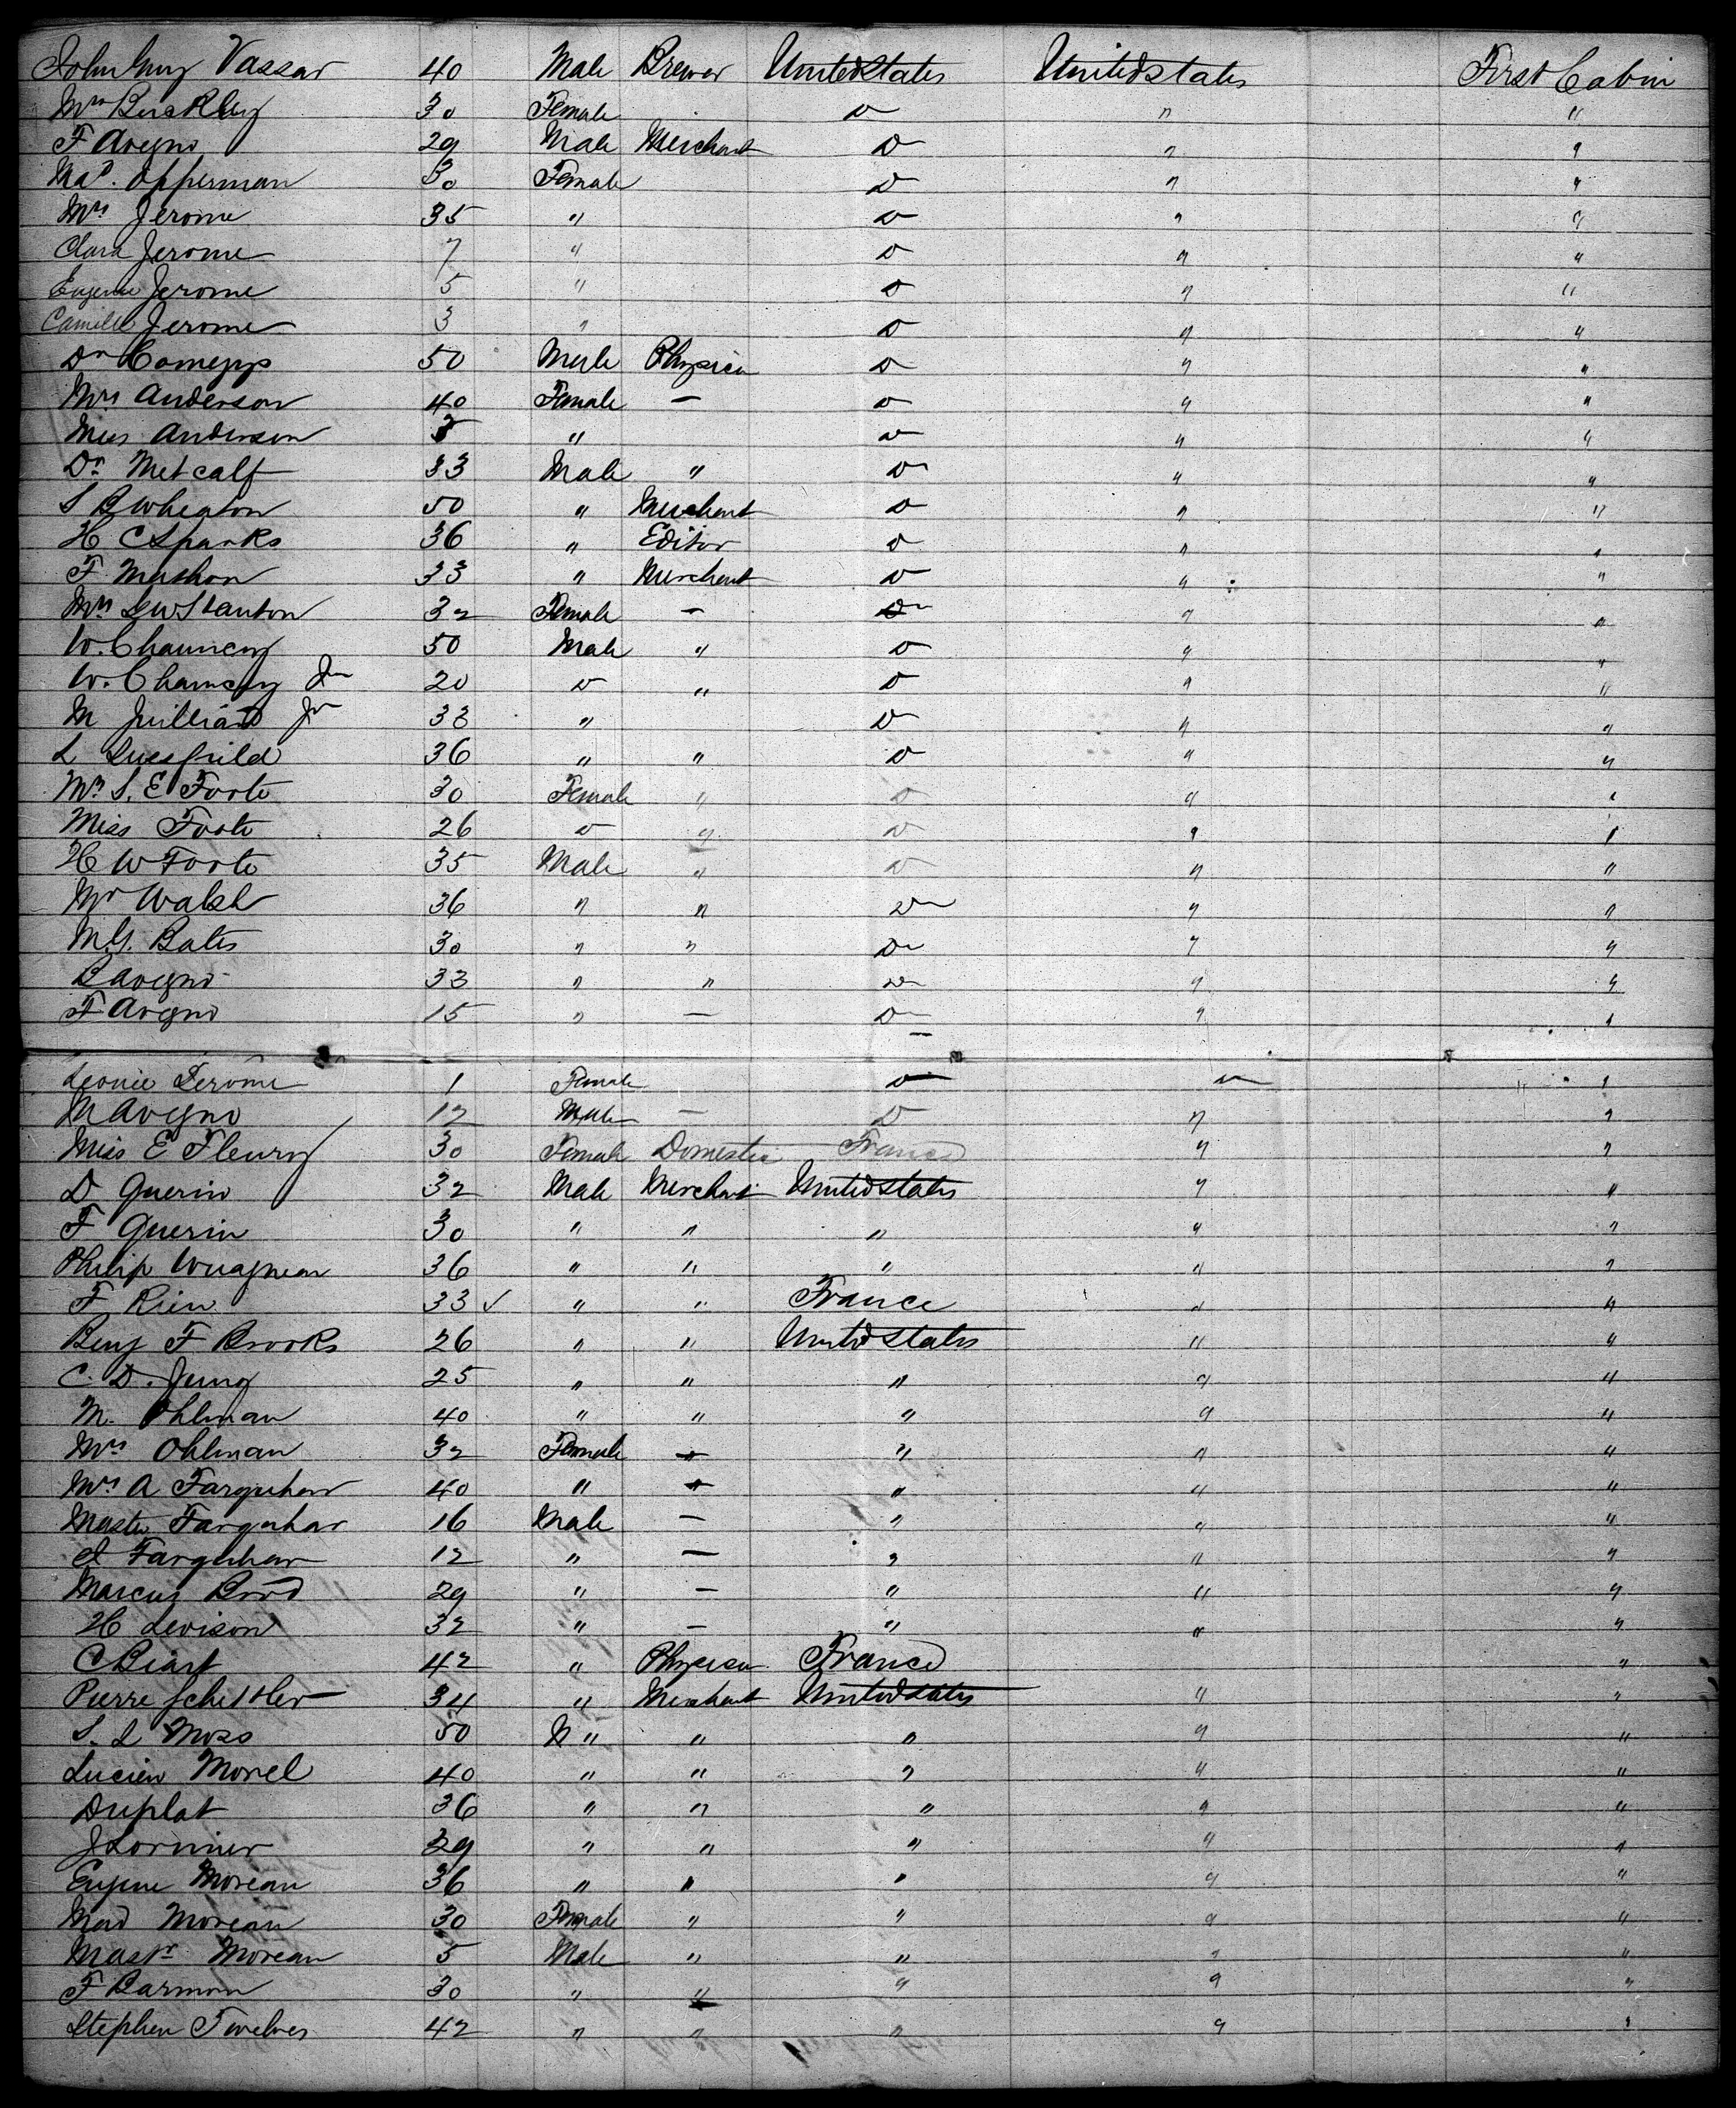 John Guy Vassar 40 Male Brewer United States United States First Cabin
Mrs Buckley 30 Female Do " "
F Avegno 29 Male Merchant Do " "
Mad. Opperman 30 Female Do " "
Mrs Jerome 35 " Do " "
Clara Jerome 7 " Do " "
Eugenie Jerome 5 " Do " "
Camille Jerome 3 " Do " "
Dr 50 Male Physician Do " "
Mrs Anderson 40 Female – Do " "
Miss Anderson " Do " "
Dr Metcalf 33 Male " Do " "
S B Wheaton 50 " Merchant Do " "
H C Sparks 36 " Editor Do " "
F Mathon 33 " Merchant Do " "
Mrs L W Stanton 32 Female – Do " "
W. Chauncey 50 Male " Do " "
W. Chauncey Jr 20 Do " Do " "
M Juilliard Jr 33 " Do " "
L 36 " " Do " "
Mrs S. E Foote 30 Female " Do " "
Miss Foote 26 Do " Do " "
H W Foote 35 Male " Do " "
Mr Walsh 36 " " Do " "
M. Y. Bates 30 " " Do " "
B Avegno 33 " " Do " "
F Avegno 15 " – Do " "
Leonie Jerome 1 Female Do Do "
M Avegno 12 Male – Do " "
Miss E Fleury 30 Female Domestic France " "
D Guerin 32 Male Merchant United States " "
F Guerin 30 " " " " "
Philip 36 " " " " "
F Rien 33 ✓ " " France " "
Benj F Brooks 26 " " United States " "
C. D. Jung 25 " " " " "
M. Ohlman 40 " " " " "
Mrs Ohlman 32 Female – " " "
Mrs A Farquhar 40 " – " " "
Master Farquhar 16 Male – " " "
Farquhar 12 " – " " "
Marcus 29 " – " " "
H Levison 32 " – " " "
C Biart 42 " Physician France "
Pierre Schettler 34 " Merchant United States " "
S. L Moss 50 " " " " "
Lucien Morel 40 " " " " "
Duplat 36 " " " " "
J Lorimier 29 " " " " "
Eugene Moreau 36 " " " " "
Mad Moreau 30 Female " " " "
Mastr Moreau 5 Male " " " "
F Barmon 30 " " " " "
Stephen Twelves 42 " " " " "